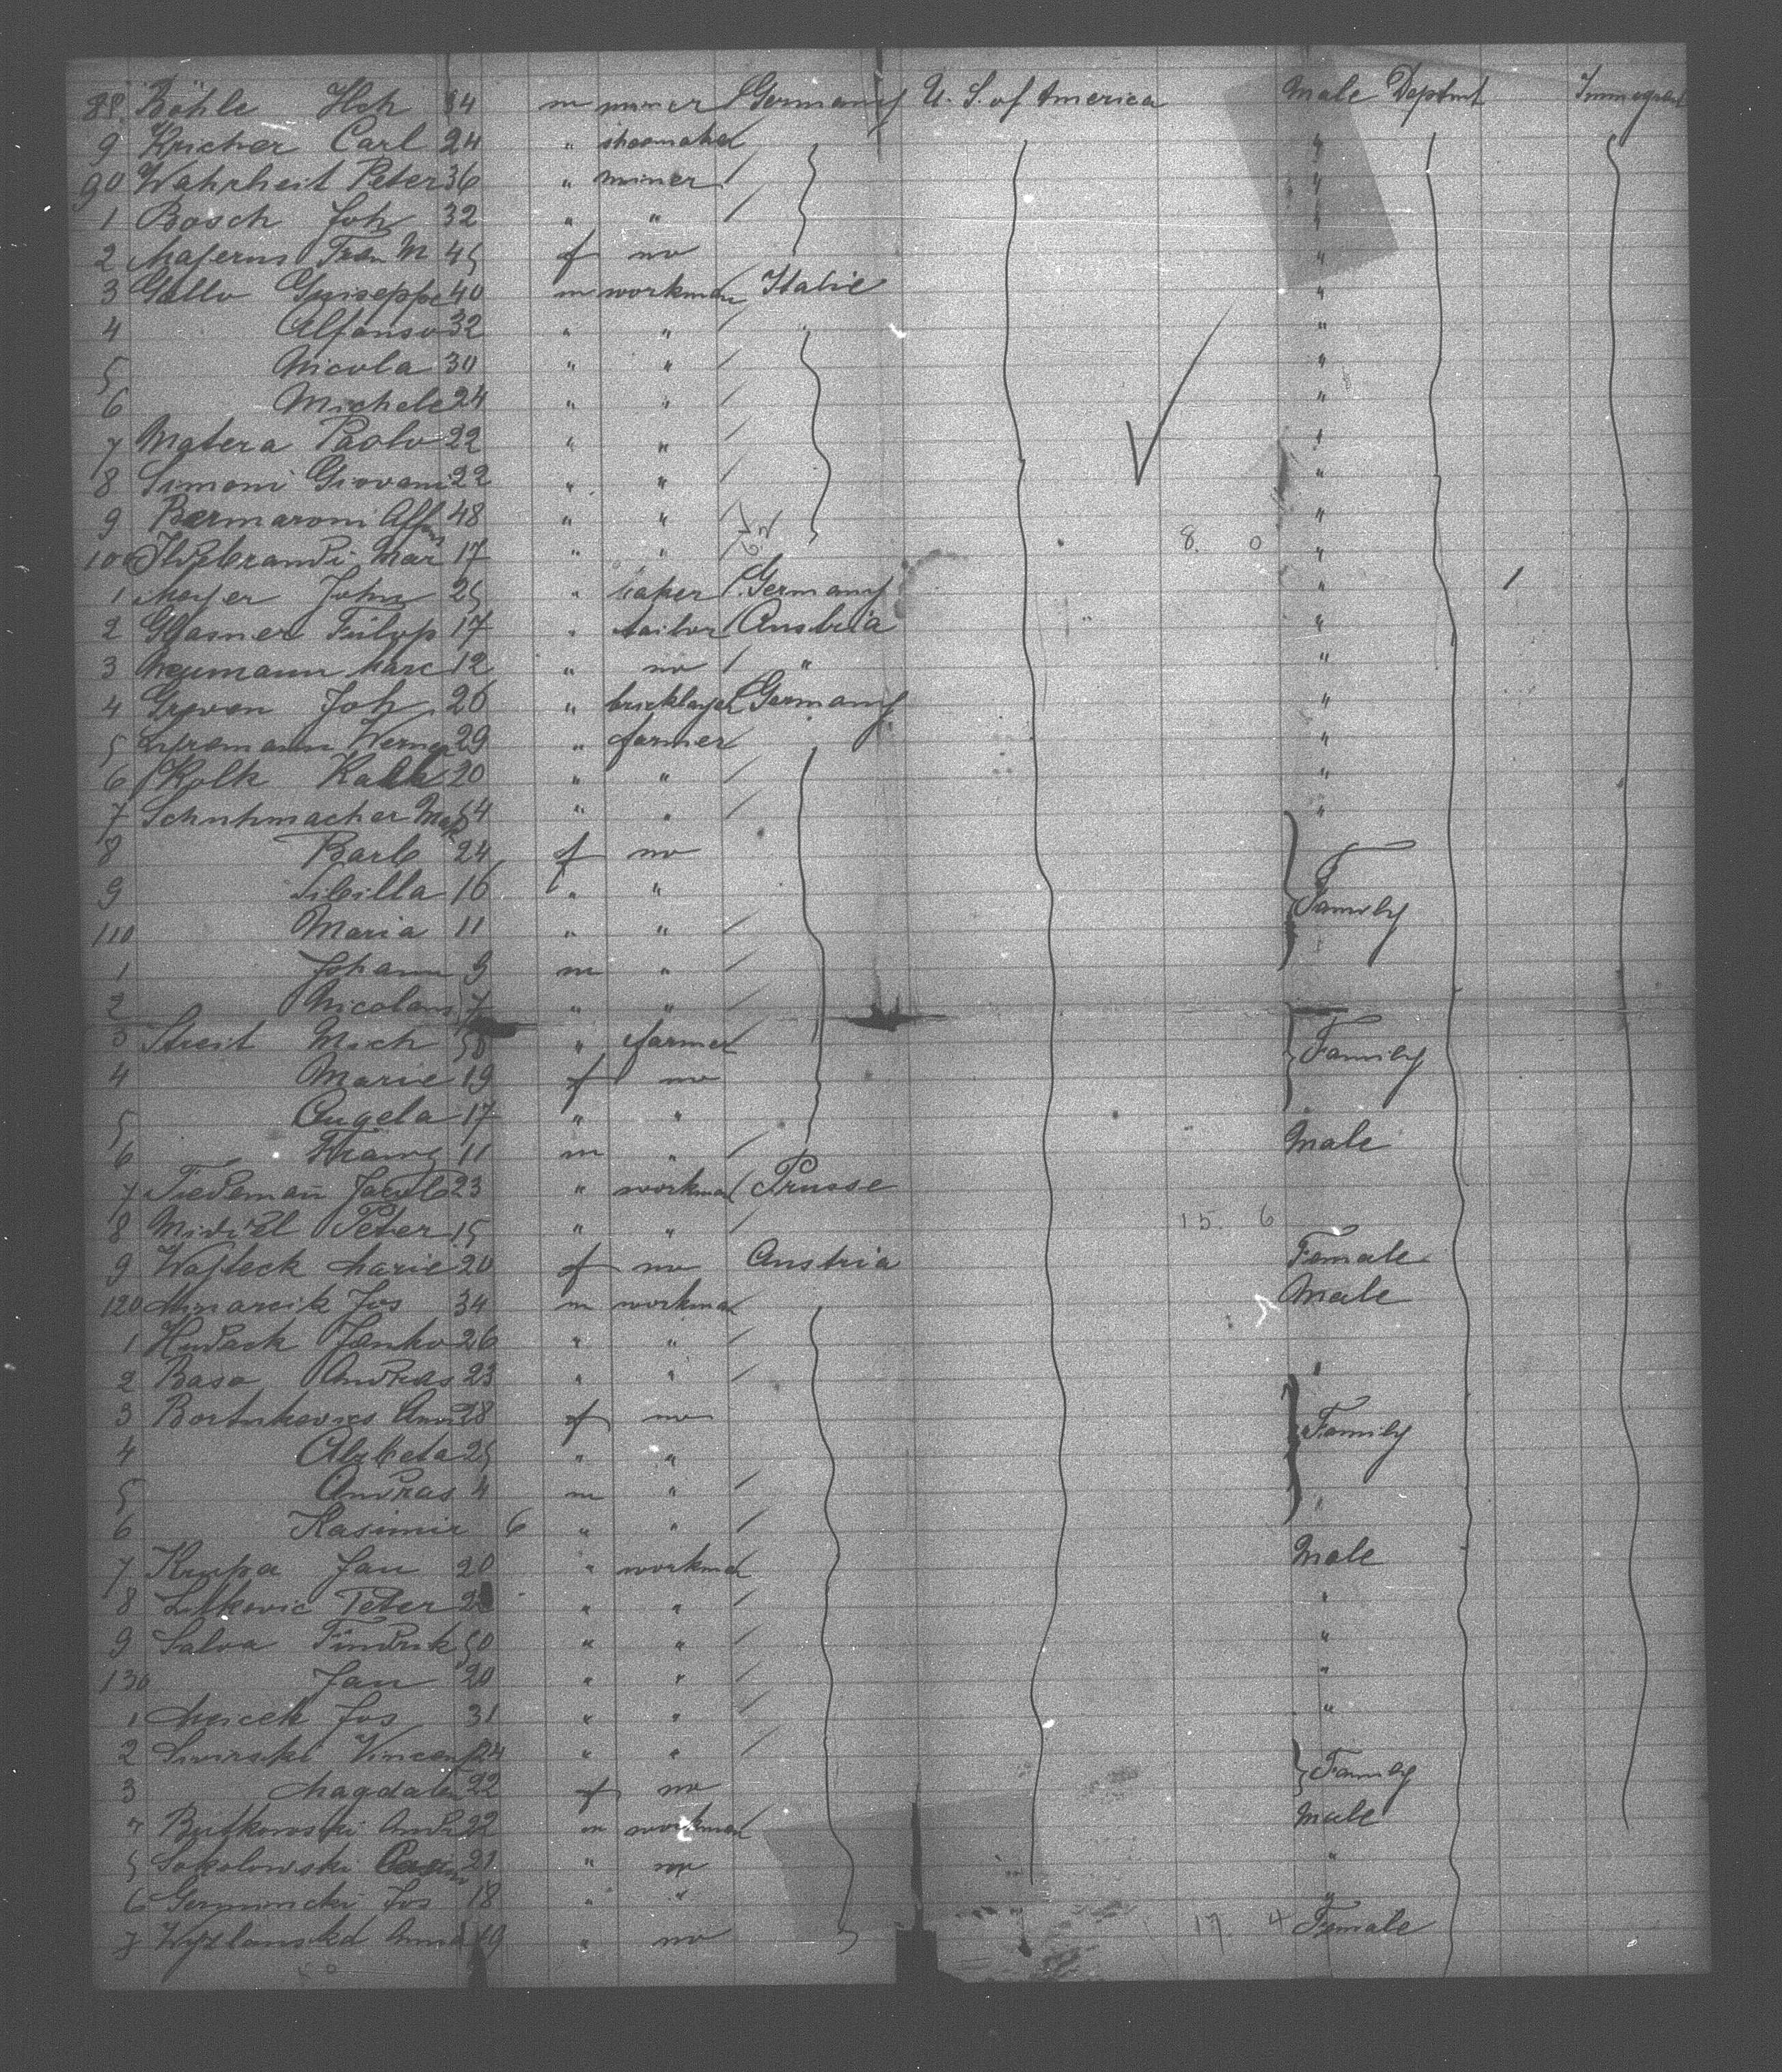 88. Böhle Hch 34 m miner Germany U. S. of America Male Deptmt Immegrant
9 Kricher Carl 24 " shoemaker "
90 Wahrheit Peter 36 " miner "
1 Bosch Joh 32 " " "
2 Majerus Fran M 45 f no "
3 Gallo Guiseppe 40 m workman Italie "
4 Alfonso 32 " " "
5 Nicola 30 " " "
6 Michele 24 " " "
7 Matera Paolo 22 " " "
8 Simoni Giovani 22 " " "
9 Bermaroni Alfn 48 " " "
100 Ildebrandi Mar 17 " " 8. 0 "
1 Mayer John 25 " baker Germany "
2 Glasner Fülop 17 " tailor Austria "
3 Neumann Marc 12 " no " "
4 Greven Joh. 26 " bricklayer Germany "
5 Werner 29 " farmer "
6 Kolk 20 " " "
7 Schuhmacher 54 " " "
8 Barb 24 f no
9 Sibilla 16 " " Family
110 Maria 11 " "
1 Johann 9 m "
2 Nicolaus 7 " "
3 Streit Mich 50 " farmer Family
4 Marie 19 f no
5 Angela 17 " "
6 Franz 11 m " Male
7 Tiedeman Jacob 23 " workman Prusse
8 Peter 15 " " 15. 6
9 Wojteck Marie 20 f no Austria Female
120 Jos 34 m workman Male
1 Hudack Janko 26 " "
2 Basa Andras 23 " " "
3 28 f no Family
4 Alzbeta 25 " "
5 Andras 4 m " "
6 Kasimir 6 " "
7 Krupa Jan 20 " workman Male
8 Litkovic Peter " " "
9 Salva 50 " " "
130 Jan 20 " " "
1 Jos 31 " " "
2 Swirski Vincent 24 " " Family
3 Magdalen 22 f no
4 Butkowski 22 m workman Male
5 Sokolowski 21 " no "
6 Jos 18 " " "
7 Anna 19 " no 17. 4 Female